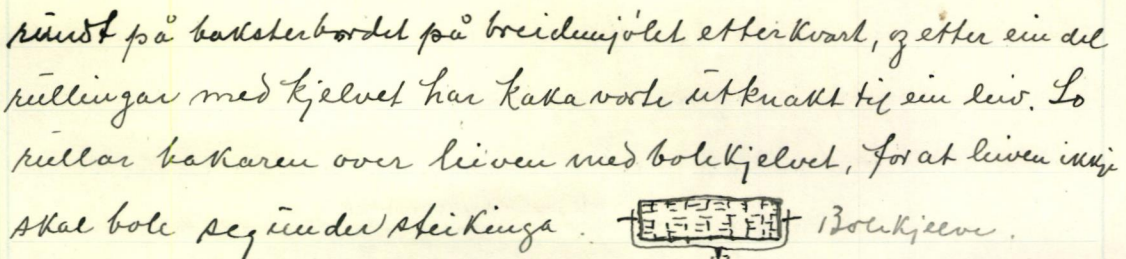 rundt på baksterbordet på breidemjølet etterkvart, og etter ein del
rullingar med kjelvet har kaka vorte utknakt til ein leiv. So
rullar bakaren over leiven med bolekjelvet, for at leiven ikkje
skal bole seg under steikinga. Bolekjelve.